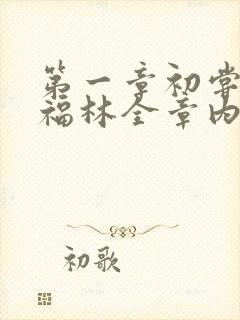 第一章初尝
福林全章内
初歌